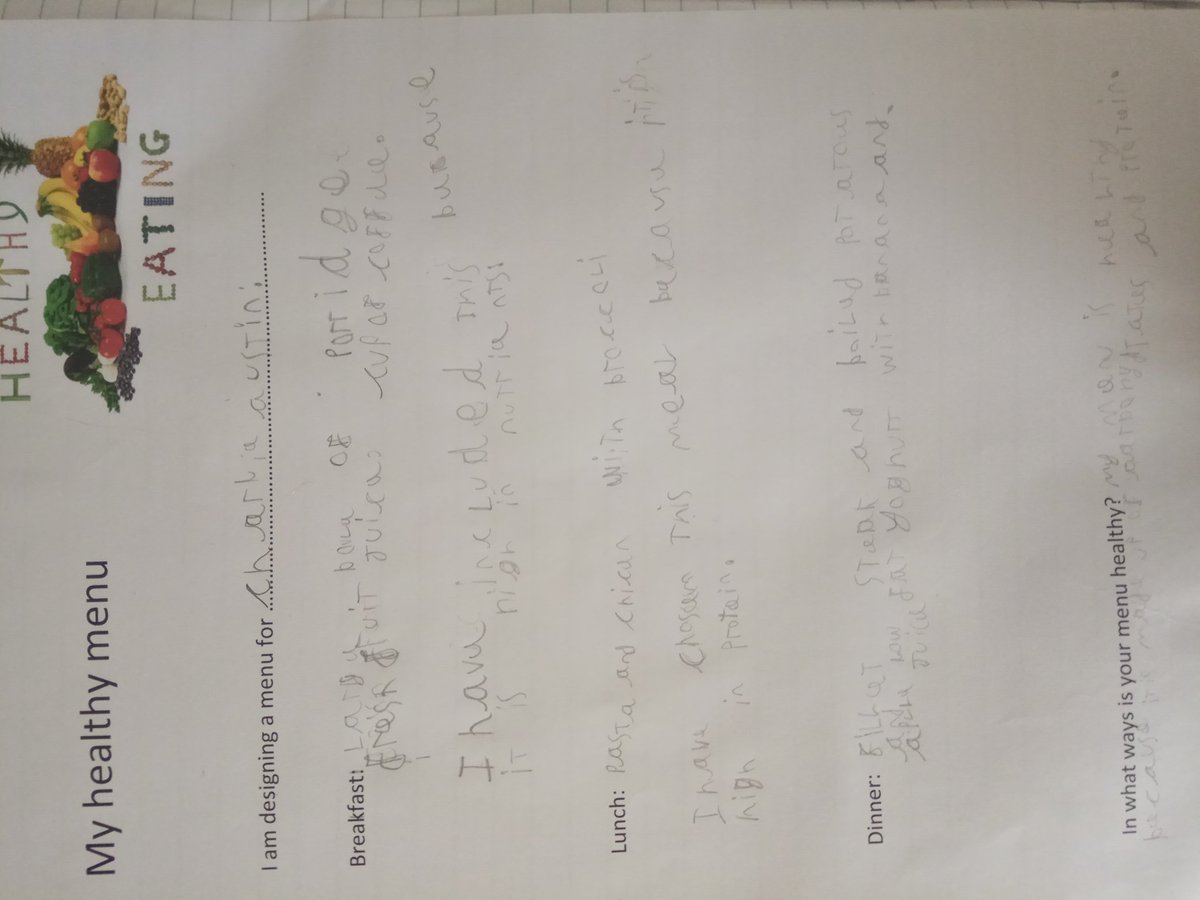 HEALTHY
EATING
My healthy menu
I am designing a menu for charlie austin.
Breakfast: Large bowl of porridge.
fresh fruit juices cup of coffee.
I have included this because
it is high in nutriants.
Lunch: Pasta and chican with broccoli
I have chosen this meal because it is
high in protain.
Dinner: fillet steak and boiled potatous
and low fat yoghurt with banana and.
apple juice
In what ways is your menu healthy? my menu is healthy
because it is made of carbohydrates and protain.